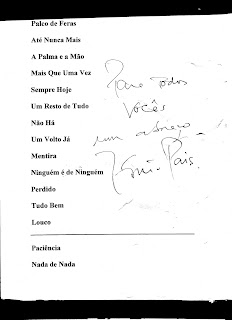 Palco de Feras
Até Nunca Mais
A Palma e a Mão
Mais Que Uma Vez
Sempre Hoje
Um Resto de Tudo
Não Há
Um Volto Já
Mentira
Ninguém é de Ninguém
Perdido
Tudo Bem
Louco
Paciência
Nada de Nada
Para todos
Vocês
um abraço
Pais